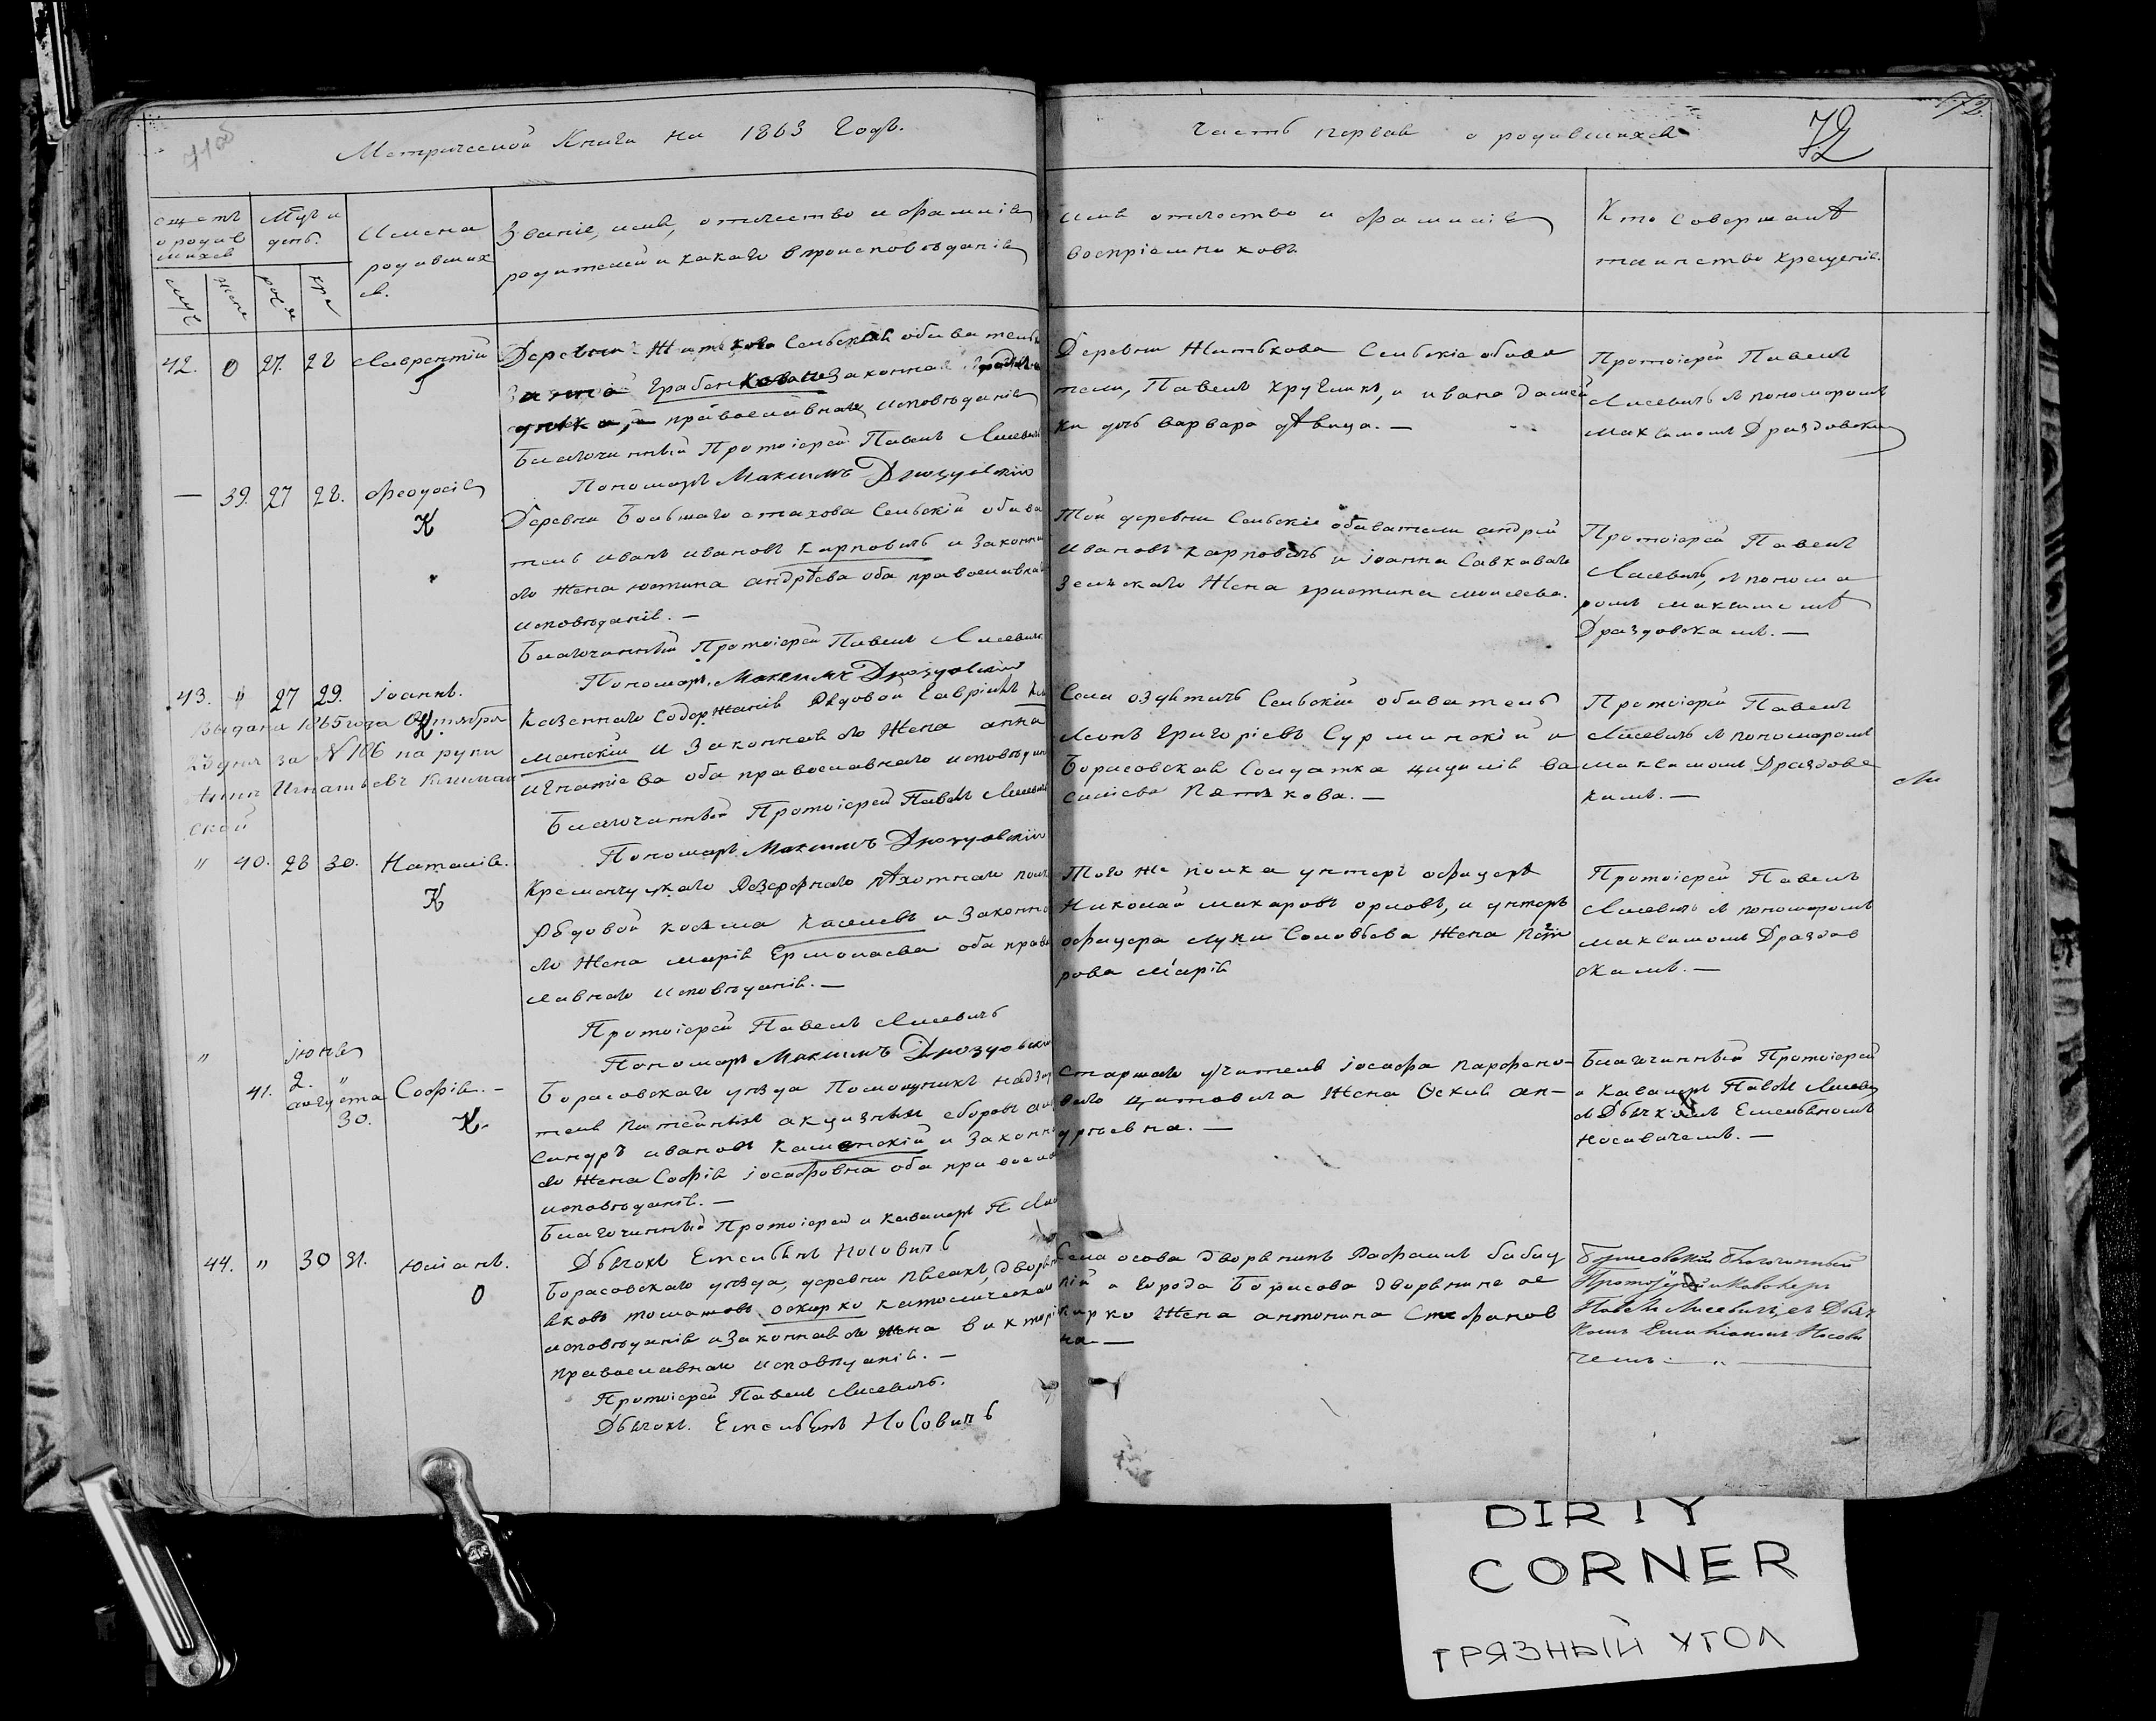 Метрической Книги на 1863 Годъ.
Часть первая о родившихся
72
Имена
родивших
ся.
Званіе, имя, отчество и фамилія
родителей и какаго вѣроисповѣданія
Имя отчество и фамилія
воспріемниковъ
Кто совершалъ
таинство крещенія.
42. 0 27. 28 Лаврентій
Деревни Житькова Сельскій обыватель
законная
православнаго исповѣданія
Благочинный Протоіерей Павелъ Лисевичъ
Пономарь Максимъ Дроздовскій
Деревни Житькова Сельскіе обыва
тели, Павелъ Кручинъ, и Ивана
дочь Варвара дѣвица. —
Протоіерей Павелъ
Лисевичъ съ пономаромъ
Максимомъ Драздовским
— 39. 27 28. Феодосія
К
Деревни Большаго Стахова Сельскій обыва
тель Иванъ Ивановъ Карповичъ и Законна
его Жена Юстина Андреева оба православна
исповѣданія. —
Благочинный Протоіерей Павелъ Лисевичъ
Пономарь Максимъ Дроздовскій
Той деревни Сельскіе обыватели Андрей
Ивановъ Карповичъ и Іоанна
Жена Христина Моисеева.
Протоіерей Павелъ
Лисевичъ, съ понома
ромъ Максимомъ
Драздовскимъ. —
43. " 27 29. Іоаннъ.
К
Выдана 1865 года Октября
23 дня за N 186 на руки
Игнатьевѣ Климан
ской
Казеннаго Содержанія Рядовой Гавріилъ Кли
манскій и Законная его Жена Анна
Игнатіева оба православнаго исповѣдан
Благочинный Протоіерей Павелъ Лисевичъ
Пономарь Максимъ Дроздовскій
Села Сельскій обыватель
Леонъ Григорісвъ Сурминскій и
Борисовская Солдатка Цицилія Ва
силіева кова. —
Протоіерей Павелъ
Лисевичъ съ пономаромъ
Максимомъ Драздовс
кимъ. —
" 40. 28 30. Наталія.
К
Кременчугскаго Резервнаго пѣхотнаго полк
Рядовой Косьма Киселевъ и Законна
его Жена Марія Ермолаева оба правос
лавнаго исповѣданія. —
Протоіерей Павелъ Лисевичъ
Пономарь Максимъ Дроздовскій
Того же полка унтеръ офицеръ
Николай Макаровъ Орловъ, и унтеръ
офицера Луки Соловьева Жена Пет
рова Марія
Протоіерей Павелъ
Лисевичъ съ пономаромъ
Максимомъ Драздов
скимъ. —
" Іюня
41. 2. " Софія. —
августа
30.
К.
Борисовскаго уѣзда Помощникъ надзир
теля питейныхъ акцизныхъ сборовъ Алек
сандръ Ивановъ Каменскій и Законна
его Жена Софія Іосафовна оба правосла
исповѣданія. —
Благочинный Протоіерей и Кавалеръ П Лис
Дьячокъ Емельянъ Носовичъ
Старшаго учителя Іосафа Парфено-
вича Цитовича Жена Ан-
дреевна. —
Благочинный Протоіерей
и Кавалеръ Павелъ Лисевич
съ Дьячкомъ Емельяномъ
Носовичемъ. —
44. " 30 31. Юліанъ.
0
Борисовскаго уѣзда, деревни дворян
Яковъ Томашевъ Оскирко католическаго
исповѣданія и Законная его Жена Викторія
православнаго исповѣданія. —
Протоіерей Павелъ Лисевичъ.
Дьячокъ. Емельянъ Носовичъ
Села Осова Дворянинъ Рафаилъ Бабиц
кій и Города Борисова Дворянина Ос
кирко Жена Антонина Стефанов
на —
Борисовскій Благочинный
Протоіерей и Кавалеръ
Павелъ Лисевичъ, съ Дьяч
комъ Емиліаномъ Носови
чемъ. — " —
DIRTY
CORNER
ГРЯЗНЫЙ УГОЛ